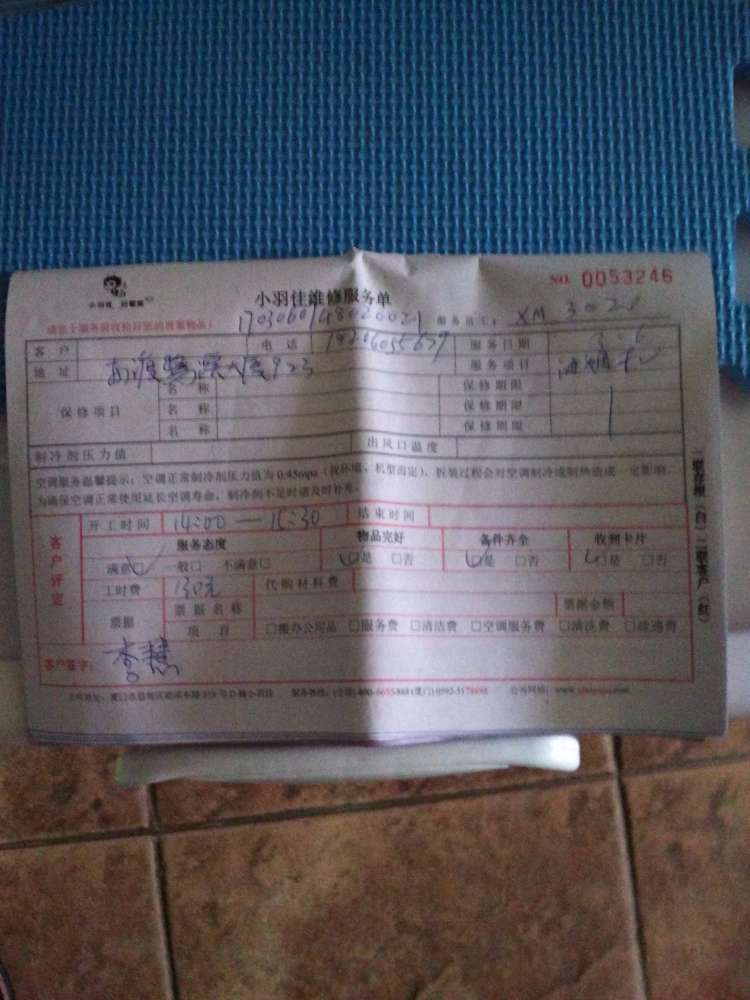 NO. 0053246
小羽佳维修服务单
请您于服务前收拾好您的贵重物品!
服务员工: XM 3028
客户 电话 服务日期 3.6
地址 服务项目
保修项目 名称 保修期限
名称 保修期限
名称 保修期限
制冷剂压力值 出风口温度
空调服务温馨提示:空调正常制冷剂压力值为0.45mpa(视环境、机型而定)、拆装过程会对空调制冷或制热造成一定影响,
为确保空调正常使用延长空调寿命,制冷剂不足时请及时补充。
客户评定
开工时间 14:00—16:30 结束时间
服务态度 物品完好 备件齐全 收到卡片
满意□ 一般□ 不满意□ □是 □否 □是 □否 □是 □否
工时费 130元 代购材料费
票据 票据名称 票据金额
项目 □搬办公用品 □服务费 □清洁费 □空调服务费 □清洗费 □疏通费
客户签字: 李慧
一联存根(白) 二联客户(红)